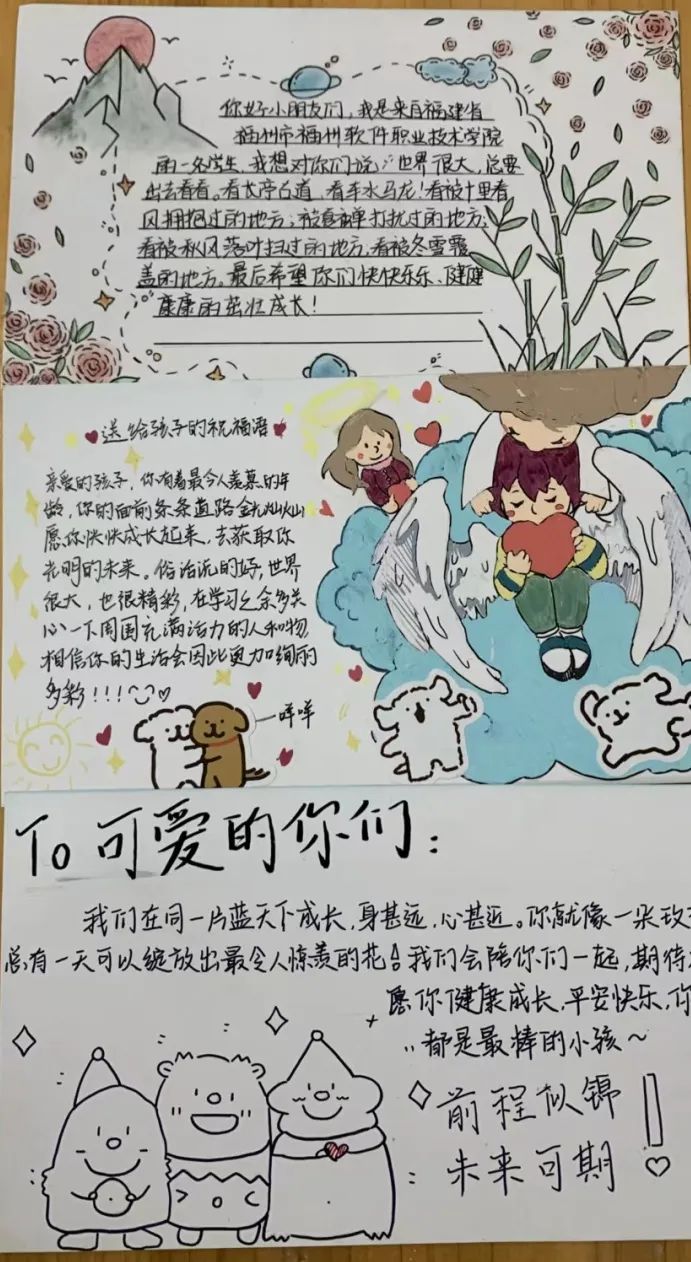 你好小朋友们，我是来自福建省
福州市福州软件职业技术学院
的一名学生，我想对你们说：世界很大，总要
出去看看。看长亭古道，看车水马龙！看被十里春
风拥抱过的地方；被夏蝉打扰过的地方；
看被秋风落叶扫过的地方；看被冬雪覆
盖的地方。最后希望你们快快乐乐、健健
康康的茁壮成长！
送给孩子的祝福语
亲爱的孩子，你有着最令人羡慕的年
龄，你的面前条条道路金灿灿
愿你快快成长起来，去获取你
光明的未来。俗话说的好，世界
很大，也很精彩，在学习之余多关
心一下周围充满活力的人和物
相信你的生活会因此更加绚丽
多彩！！！
咩咩
To 可爱的你们：
我们在同一片蓝天下成长，身甚远，心甚近。你就像一朵玫
总有一天可以绽放出最令人惊羡的花，我们会陪你们一起，期待
愿你健康成长，平安快乐，你
都是最棒的小孩~
前程似锦
未来可期！